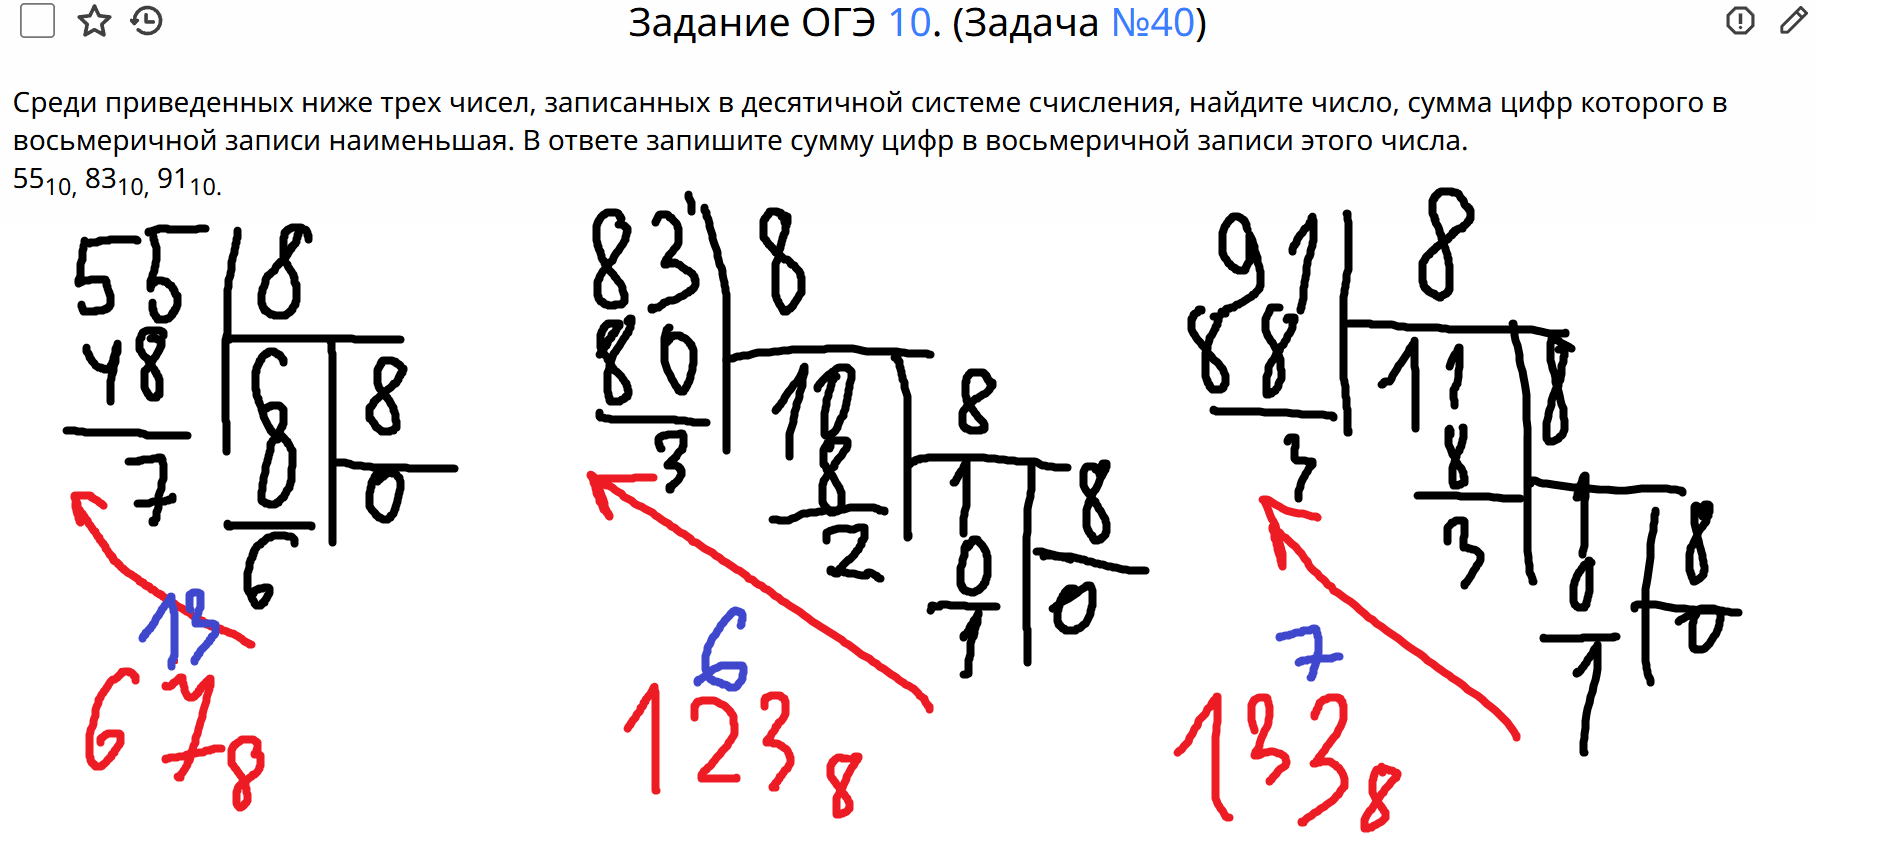 Задание ОГЭ 10. (Задача №40)
Среди приведенных ниже трех чисел, записанных в десятичной системе счисления, найдите число, сумма цифр которого в
восьмеричной записи наименьшая. В ответе запишите сумму цифр в восьмеричной записи этого числа.
55₁₀, 83₁₀, 91₁₀.
55 8
48 6 8
7 8 0
6
13
67₈
83 8
80 10 8
3 8 1 8
2 0 0
1
6
123₈
91 8
88 11 8
3 8 1 8
3 0 0
1
7
133₈